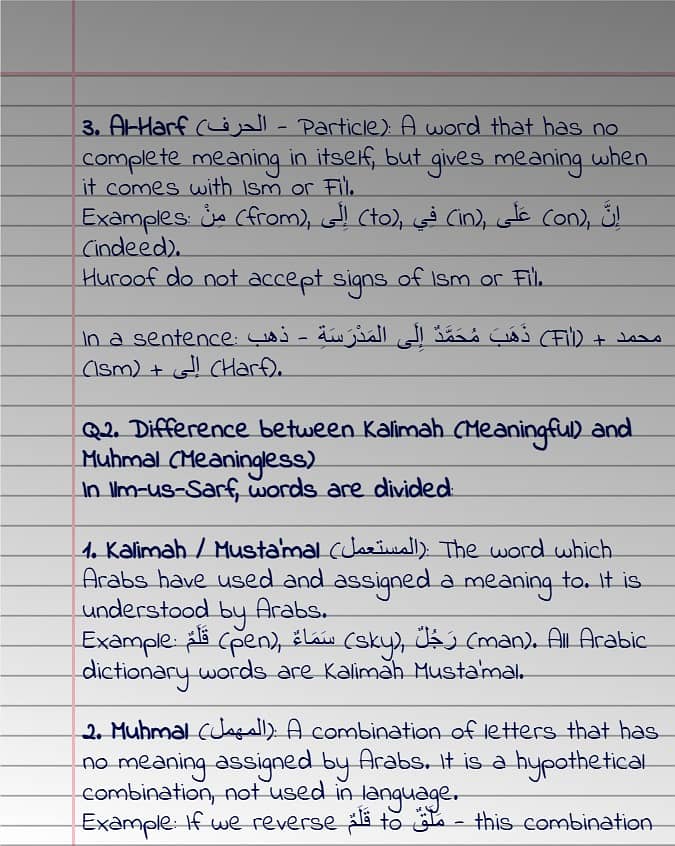 3. Al-Harf (الحرف - Particle): A word that has no
complete meaning in itself, but gives meaning when
it comes with Ism or Fi'l.
Examples: مِنْ (from), إِلَى (to), فِي (in), عَلَى (on), إِنَّ
(indeed).
Huroof do not accept signs of Ism or Fi'l.
In a sentence: ذَهَبَ مُحَمَّدٌ إِلَى المَدْرَسَةِ - ذهب (Fi'l) + محمد
(Ism) + إلى (Harf).
Q2. Difference between Kalimah (Meaningful) and
Muhmal (Meaningless)
In Ilm-us-Sarf, words are divided:
1. Kalimah / Musta'mal (المستعمل): The word which
Arabs have used and assigned a meaning to. It is
understood by Arabs.
Example: قَلَمٌ (pen), سَمَاءٌ (sky), رَجُلٌ (man). All Arabic
dictionary words are Kalimah Musta'mal.
2. Muhmal (المهمل): A combination of letters that has
no meaning assigned by Arabs. It is a hypothetical
combination, not used in language.
Example: If we reverse قَلَمٌ to مَلَقٌ - this combination